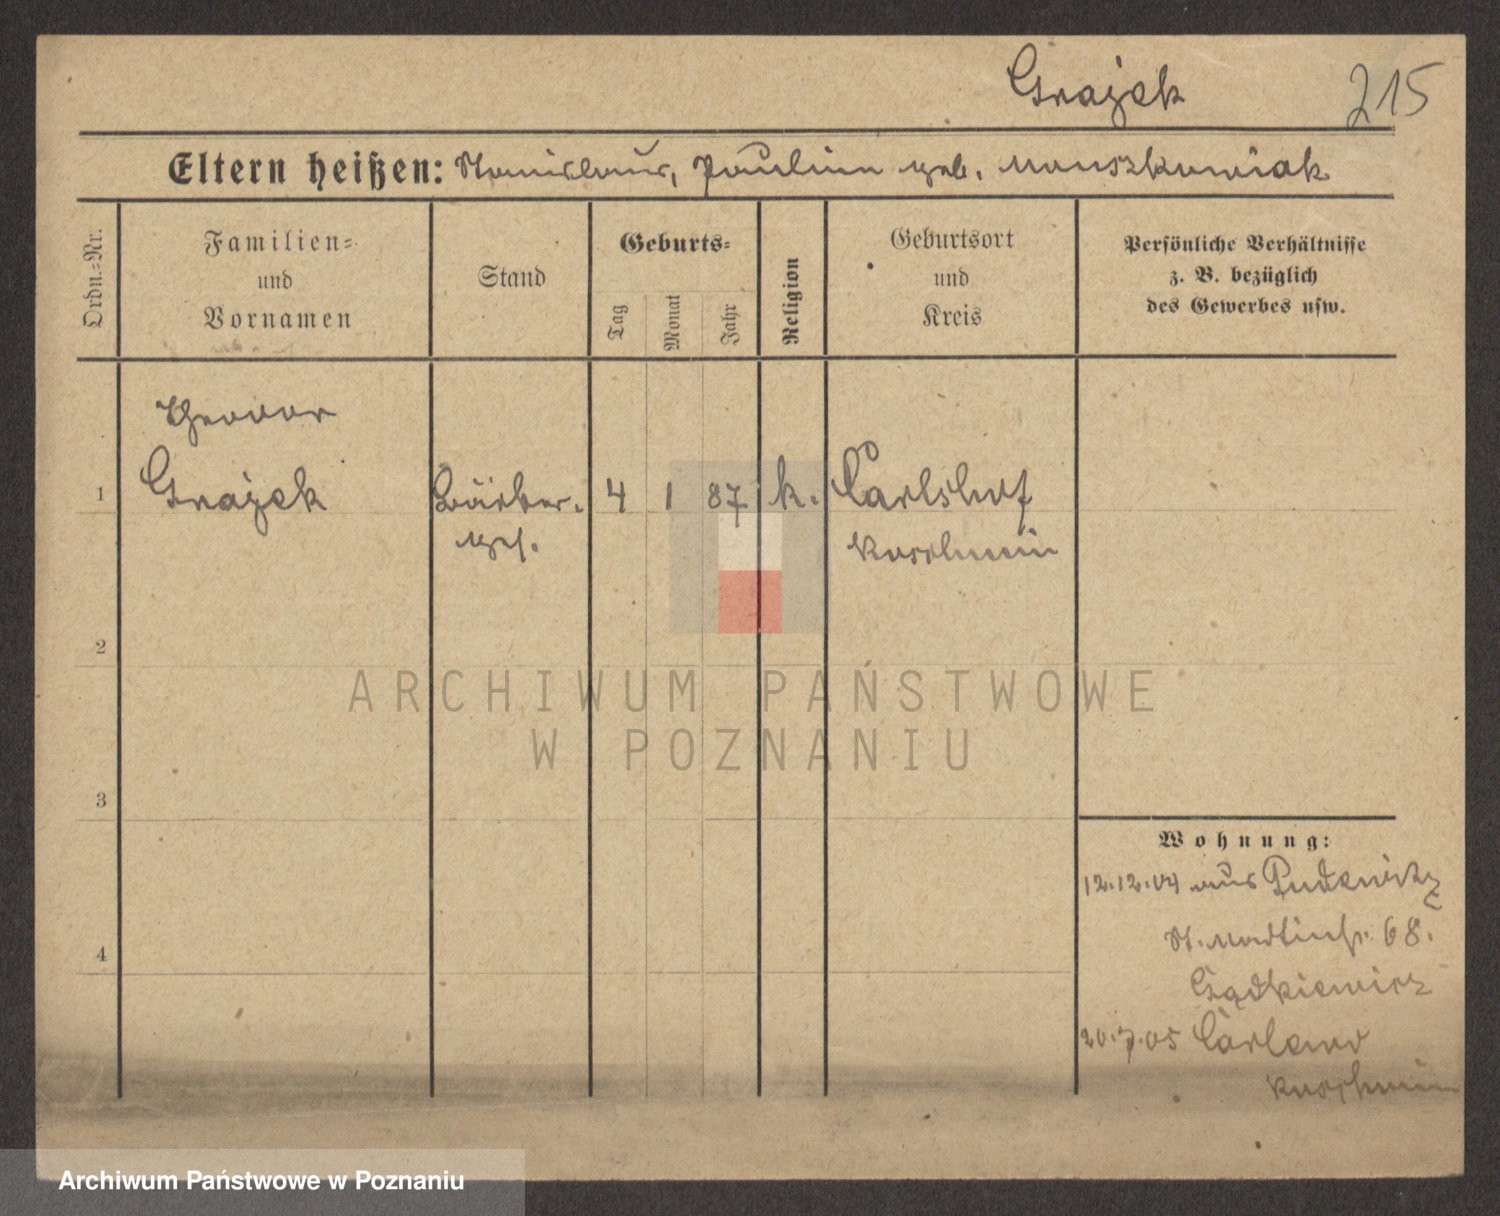 Grajek 215
Eltern heißen: Stanislaus, Pauline geb. Mouszkowiak
Ordn.-Nr.
Familien-
und
Vornamen
Stand
Geburts-
Tag
Monat
Jahr
Religion
Geburtsort
und
Kreis
Persönliche Verhältnisse
z. B. bezüglich
des Gewerbes usw.
Theodor
1 Grajek Barbier- 4 1 87 k. Carlshof
ges. Koschmin
2
ARCHIWUM PAŃSTWOWE
W POZNANIU
3
Wohnung:
12.12.04 aus Pudewitz
4 St. Martinstr. 68.
20.7.05
Koschmin
Archiwum Państwowe w Poznaniu